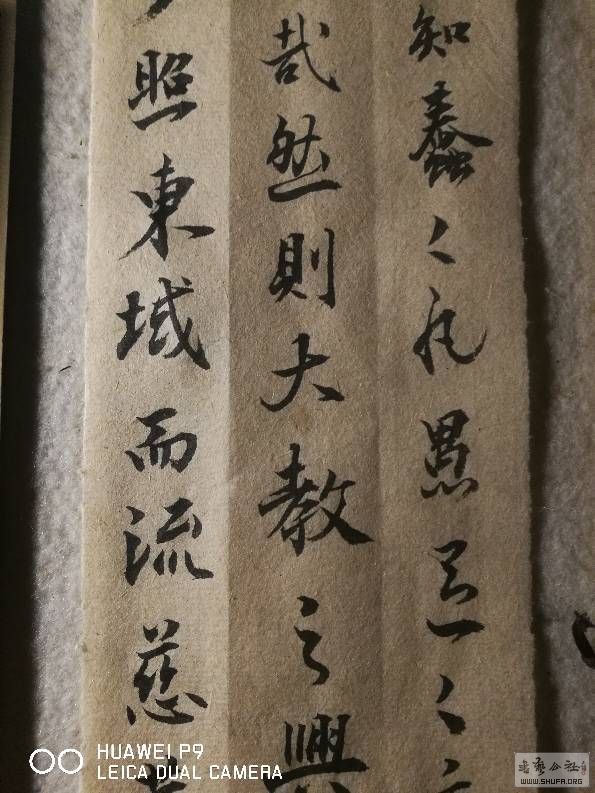 知蠢〻凡愚區〻
哉然則大教之興
照東域而流慈
HUAWEI P9
LEICA DUAL CAMERA
WWW.SHUFA.ORG